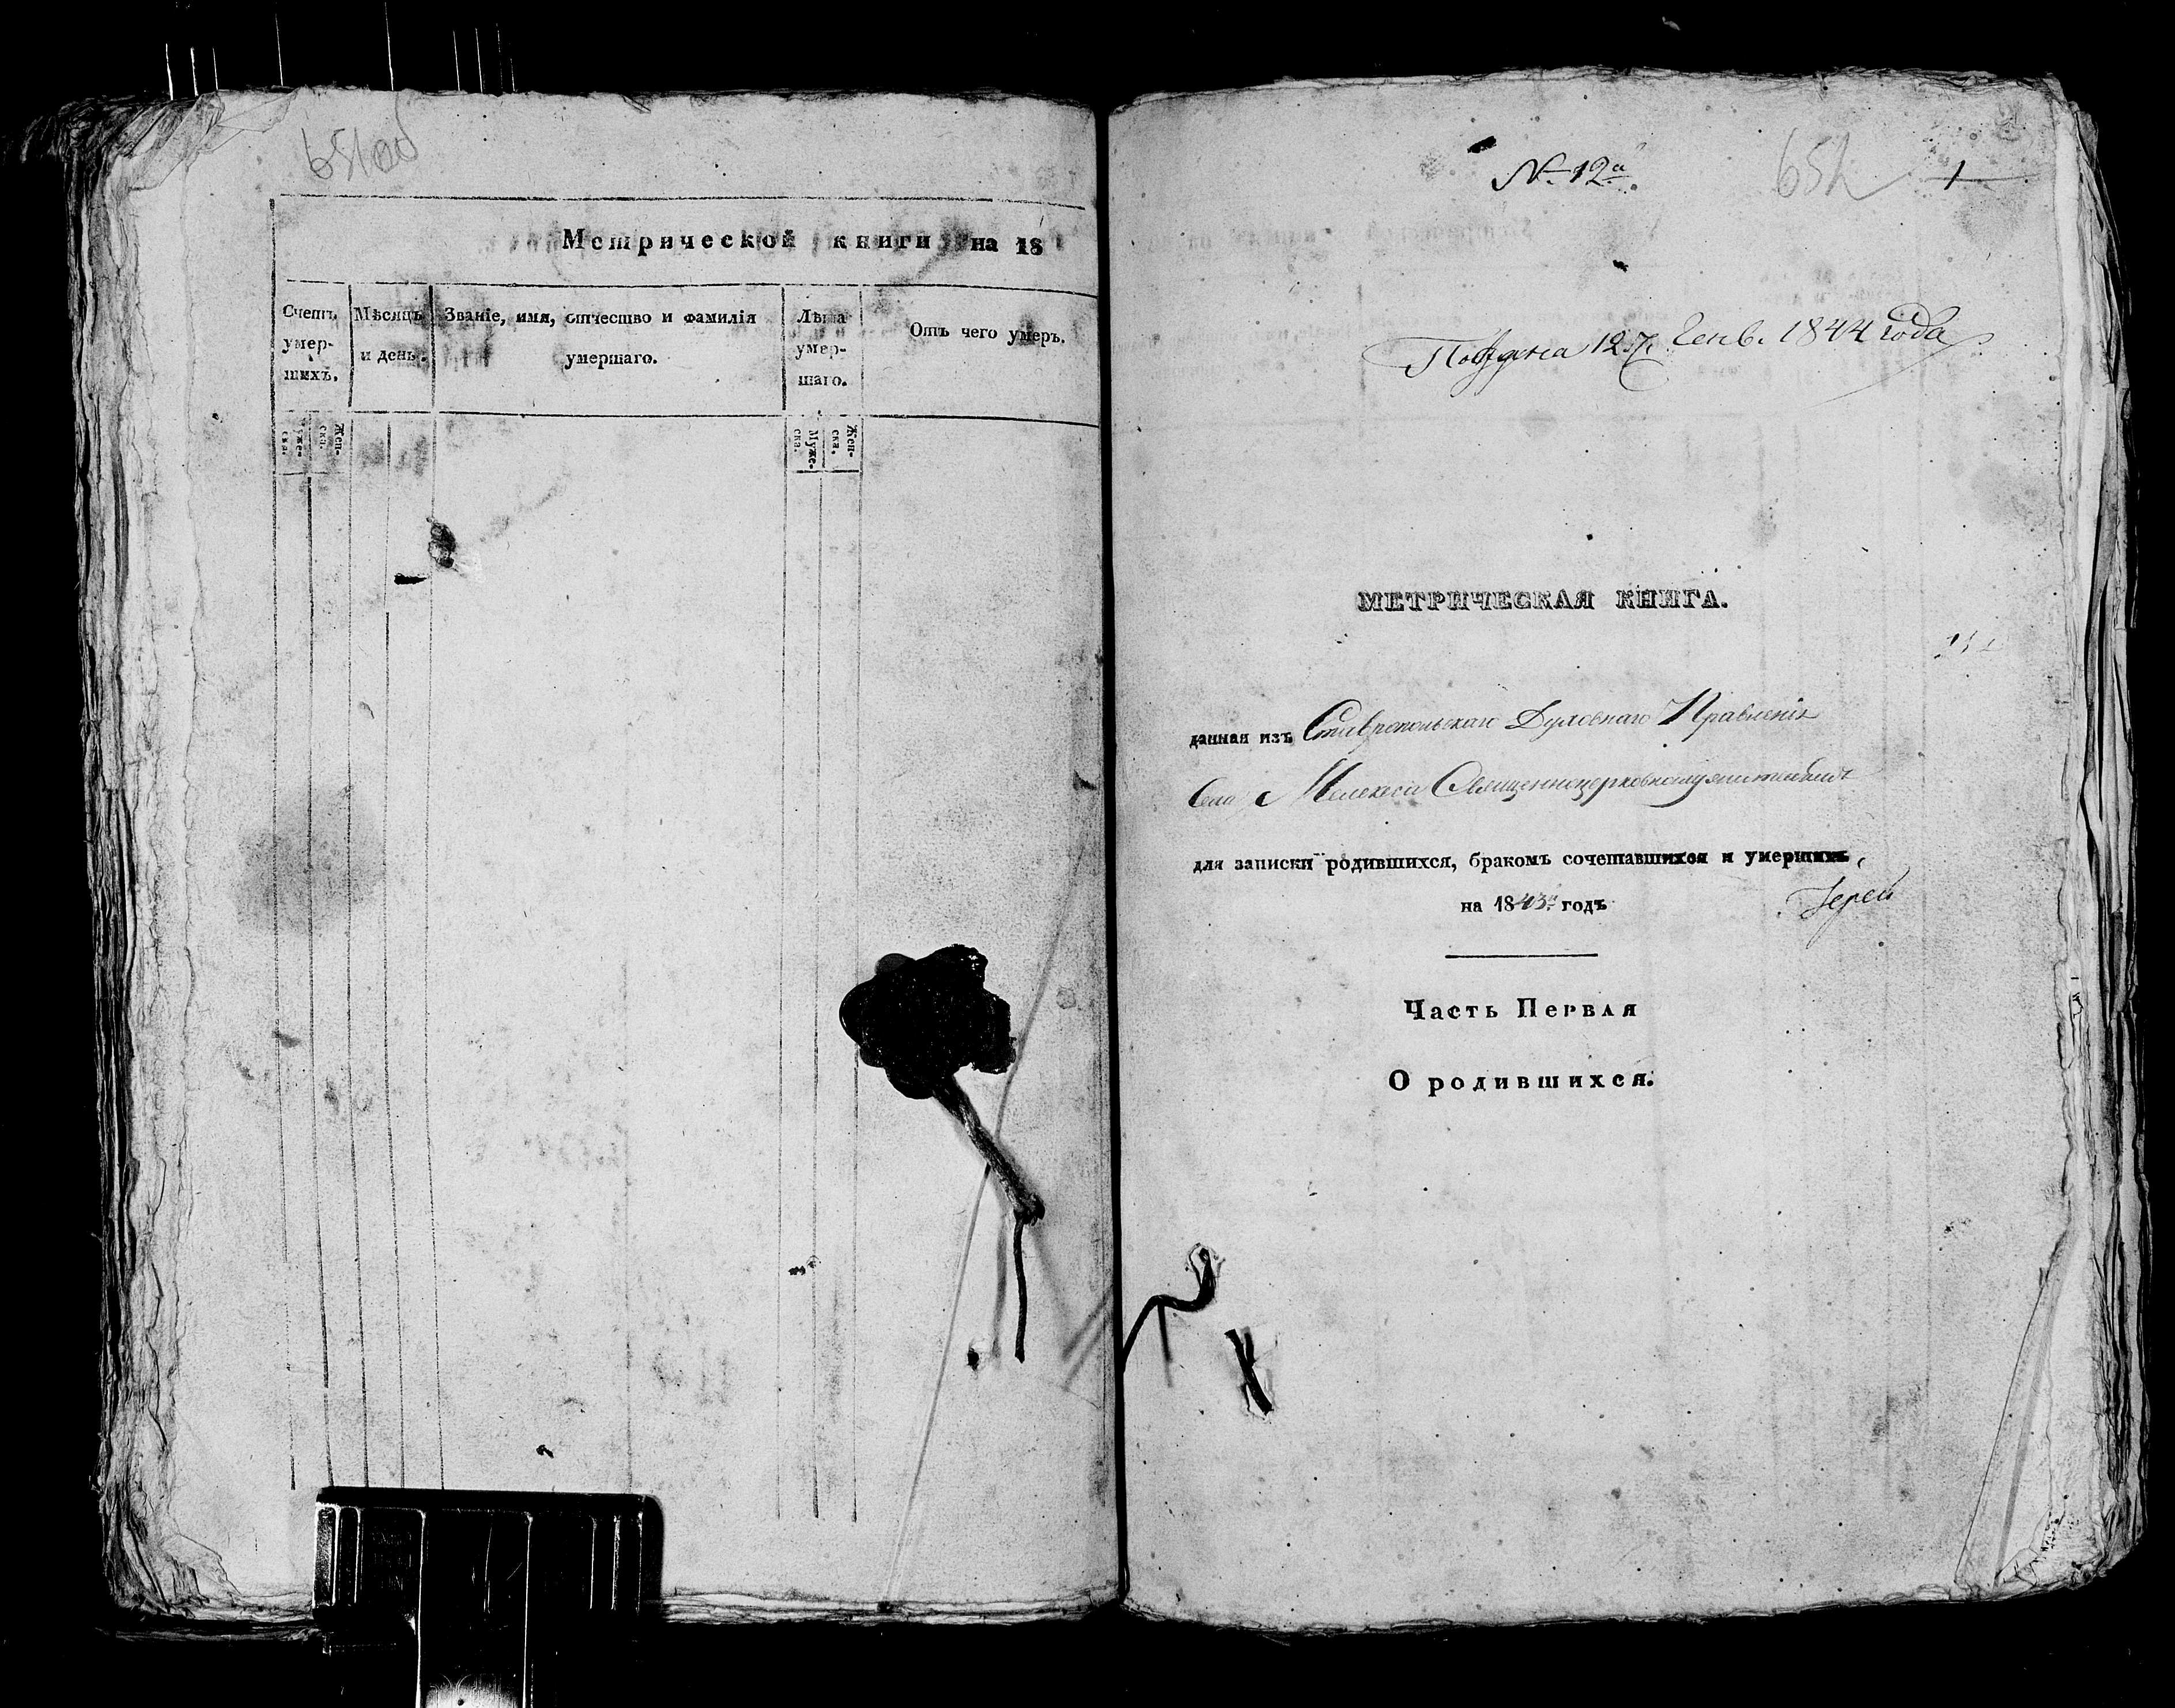 651об
Метрической книги на 18
Счетъ умер- шихъ.
Мѣсяцъ и день.
Званіе, имя, отчество и фамилія умершаго.
Лѣта умер- шаго.
Отъ чего умеръ.
Муже- ска.
Жен- ска.
Муже- ска.
Жен- ска.
№ 12й
652
1
Подана 12. Генв. 1844 года
МЕТРИЧЕСКАЯ КНИГА.
данная изъ Ставропольскаго Духовнаго Правленія
Села Мелекеса Священноцерковнослужителямъ
для записки родившихся, бракомъ сочетавшихся и умершихъ,
на 1843й годъ
Іерей
Часть Первая
О родившихся.